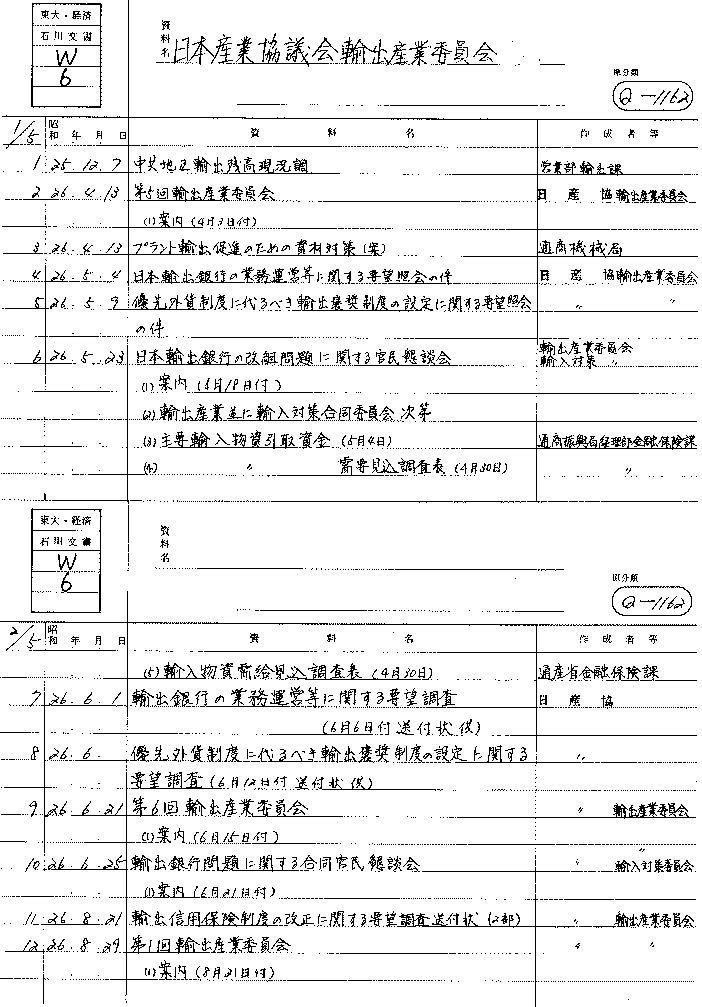 東大・経済
石川文書
W
6
資料名 日本産業協議会輸出産業委員会
原分類
Q-1162
1/5 昭和 年 月 日 資料名 作成者等
1 25.12.7 中共地区輸出残高現況調 営業部輸出課
2 26.4.13 第5回輸出産業委員会 日産協輸出産業委員会
(1)案内(4月3日付)
3 26.4.13 プラント輸出促進のための資材対策(案) 通商機械局
4 26.5.4 日本輸出銀行の業務運営等に関する要望照会の件 日産協輸出産業委員会
5 26.5.9 優先外貨制度に代るべき輸出褒奨制度の設定に関する要望照会 〃 〃
の件
6 26.5.23 日本輸出銀行の改組問題に関する官民懇談会 輸出産業委員会
輸入対策 〃
(1)案内(5月18日付)
(2)輸出産業並に輸入対策合同委員会次第
(3)主要輸入物資引取資金(5月4日) 通商振興局経理部金融保険課
(4) 〃 需要見込調査表(4月30日) 〃
東大・経済
石川文書
W
6
資料名
原分類
Q-1162
2/5 昭和 年 月 日 資料名 作成者等
(5)輸入物資需給見込調査表(4月30日) 通産省金融保険課
7 26.6.1 輸出銀行の業務運営等に関する要望調査 日産協
(6月6日付送付状後)
8 26.6. 優先外貨制度に代るべき輸出褒奨制度の設定に関する 〃
要望調査(6月12日付送付状後)
9 26.6.21 第6回輸出産業委員会 〃 輸出産業委員会
(1)案内(6月15日付)
〃
10 26.6.25 輸出銀行問題に関する合同官民懇談会 〃 輸入対策委員会
(1)案内(6月21日付)
11 26.8.21 輸出信用保険制度の改正に関する要望調査送付状(2部) 〃 輸出産業委員会
12 26.8.29 第11回輸出産業委員会 〃 〃
(1)案内(8月21日付)